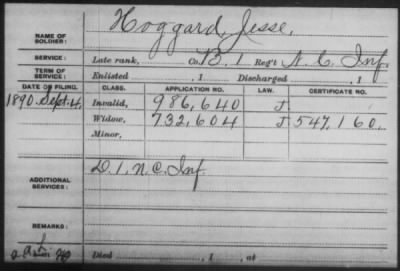 NAME OF SOLDIER: Hoggard, Jesse,
SERVICE: Late rank, Co. B. 1 Reg't N. C. Inf.
TERM OF SERVICE: Enlisted , 1 Discharged , 1
DATE OF FILING. CLASS. APPLICATION NO. LAW. CERTIFICATE NO.
1890. Sept. 4. Invalid, 986,640 J.
Widow, 732,604 J 547,160.
Minor,
ADDITIONAL SERVICES: D. 1. N. C. Inf.
REMARKS:
Died , 1 , at